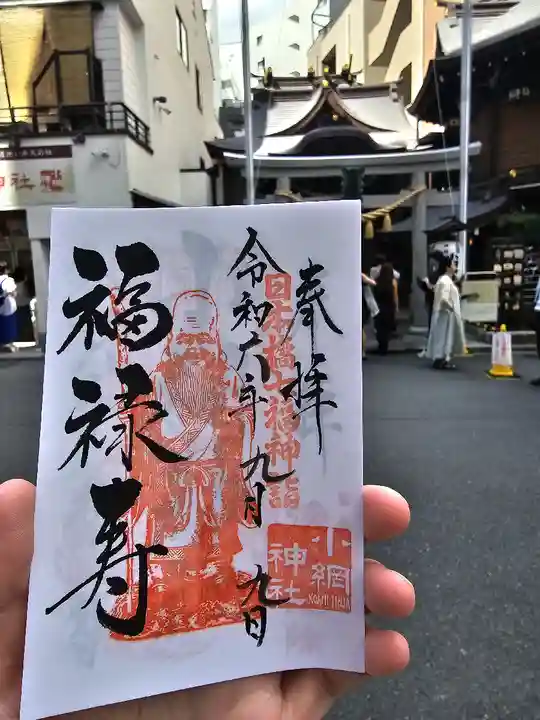 奉拝
日本橋七福神詣
令和六年九月九日
福禄寿
小網
神社
KOAMI JINJA
神社